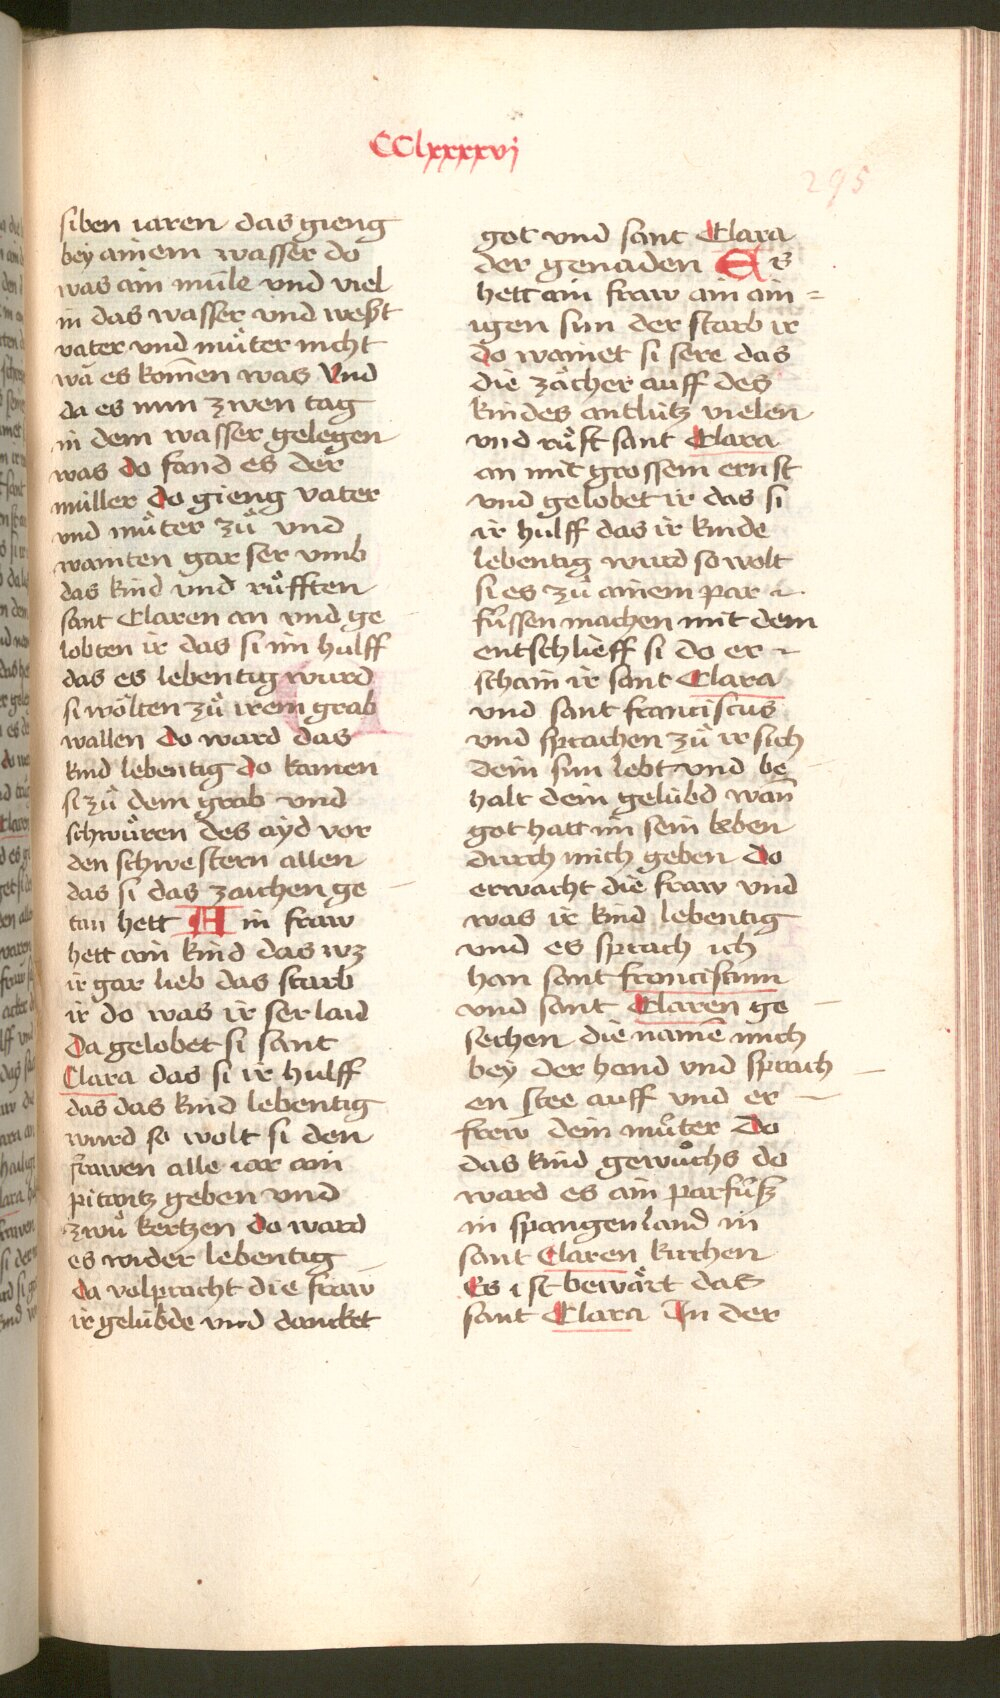 CClxxxxvj
295
siben iaren das gieng
bey ainem wasser do
was ain müle vnd viel
in das wasser vnd weßt
vater vnd muͦter nicht
wa es komen was Vnd
da es nun zwen tag
in dem wasser gelegen
was do fand es der
müller do gieng vater
vnd muͦter zuͦ vnd
wainten gar ser vmb
das kind vnd ruͦfften
sant Claren an vnd ge
lobten ir das si im hulff
das es lebentig wurd
si wölten zuͦ irem grab
wallen do ward das
kind lebentig do kamen
si zuͦ dem grab vnd
schwuͦren des ayd vor
den schwestern allen
das si das zaichen ge
tan hett Ain fraw
hett ain kind das wz
ir gar lieb das starb
ir do was ir ser laid
Da gelobet si sant
Clara das si ir hulff
das das kind lebentig
wurd so wolt si den
frawen alle iar ain
pitantz geben vnd
zwuͦ kertzen do ward
es wider lebentig
da volpracht die fraw
ir gelübde vnd dancket
got vnd sant Clara
der genaden Es
hett ain fraw ain ain=
igen sun der starb ir
do wainet si sere das
die zächer auff des
kindes antlütz vielen
vnd ruͦft sant Clara
an mit grossem ernst
vnd gelobet ir das si
ir hulff das ir kinde
lebentig wurd so wolt
si es zuͦ ainem par
fuͦssen machen mit dem
entschlieff si do er
schain ir sant Clara
vnd sant franciscus
vnd sprachen zuͦ ir sich
dein sun lebt vnd be
halt dein gelübd wan̄
got hatt im sein leben
durch mich geben do
erwacht die fraw vnd
was ir kind lebentig
vnd es sprach ich
han sant franciscum
vnd sant Claren ge
sechen die namē mich
bey der hand vnd sprach
en stee auff vnd er
frew dein muͦter Do
das kind gewuͦchs do
ward es ain parfuͦß
in spangenland in
sant Claren kirchen
Es ist bewärt das
sant Clara In der